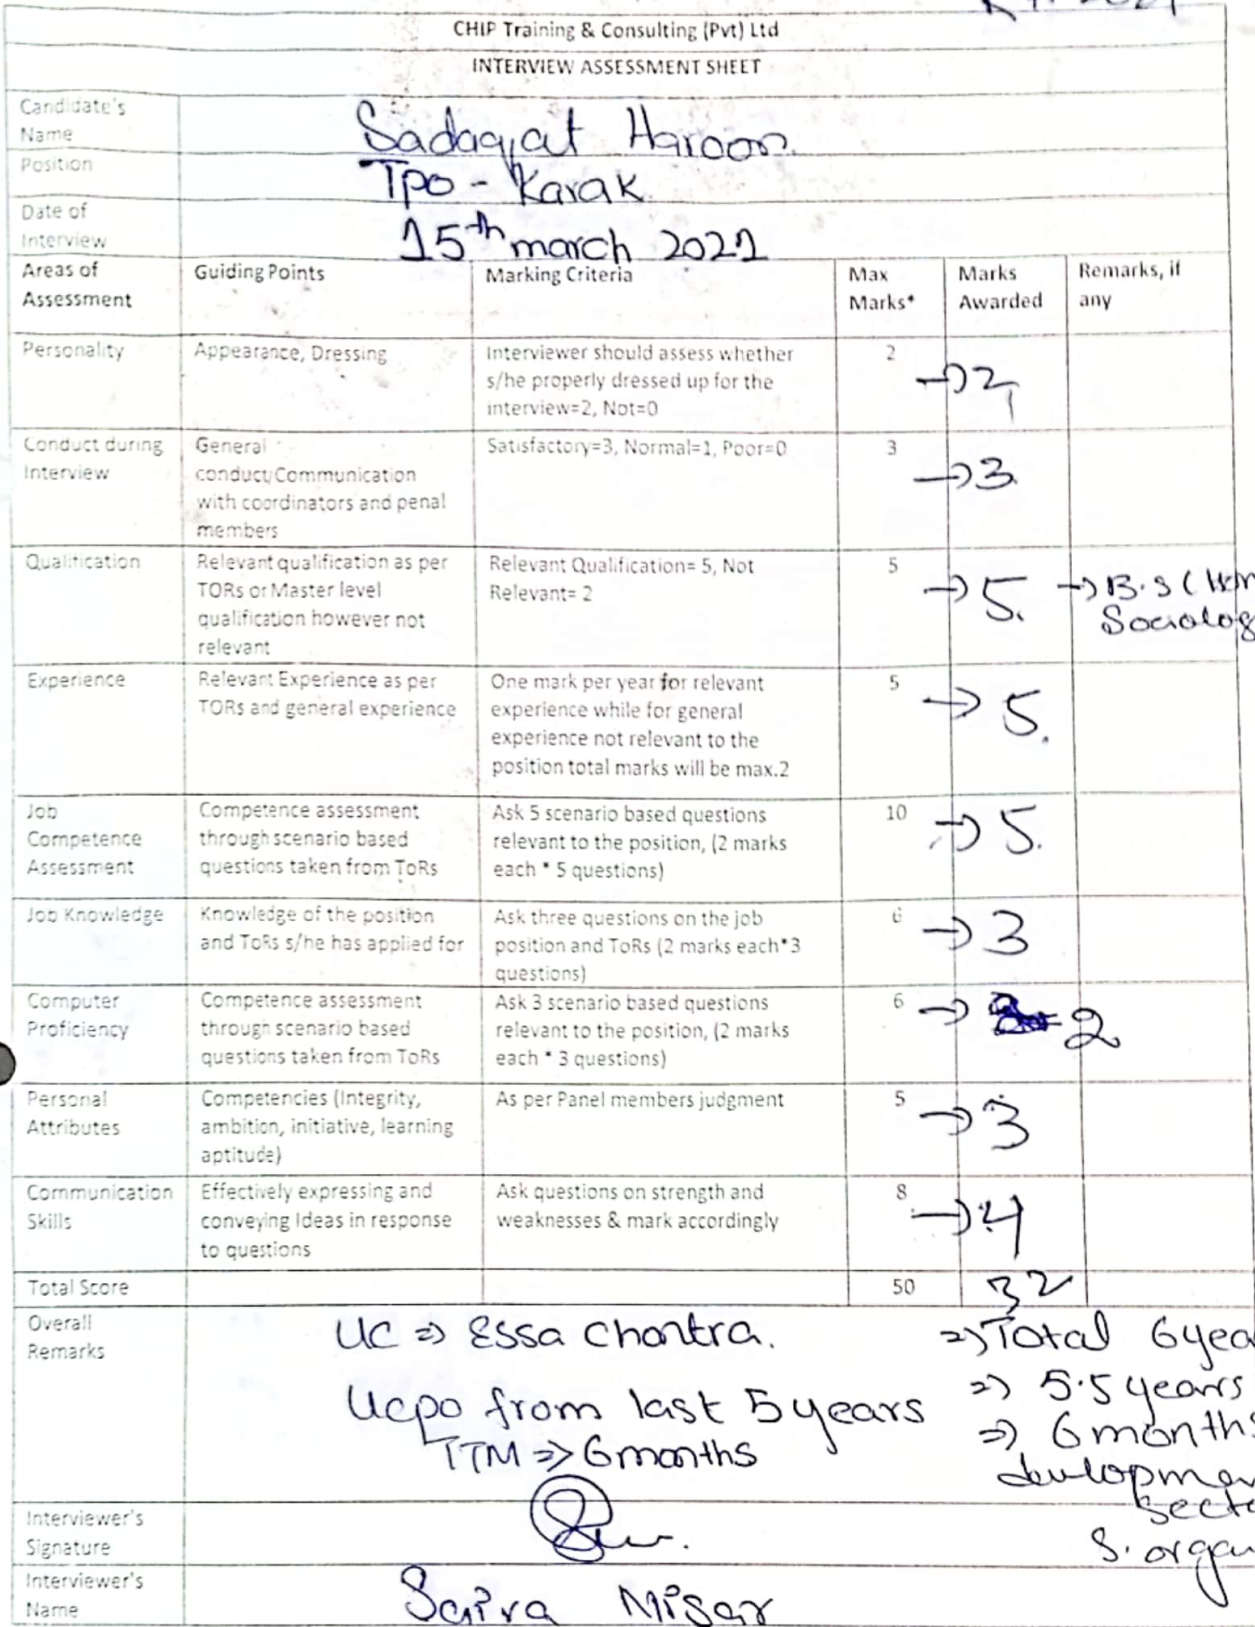 CHIP Training & Consulting (Pvt) Ltd
INTERVIEW ASSESSMENT SHEET
Candidate's Name Sadaqat Haroon.
Position Tpo - Karak.
Date of Interview 15th march 2021
Areas of Assessment Guiding Points Marking Criteria Max Marks* Marks Awarded Remarks, if any
Personality Appearance, Dressing Interviewer should assess whether s/he properly dressed up for the interview=2, Not=0 2 → 2
Conduct during Interview General conduct/Communication with coordinators and penal members Satisfactory=3, Normal=1, Poor=0 3 → 3
Qualification Relevant qualification as per TORs or Master level qualification however not relevant Relevant Qualification= 5, Not Relevant= 2 5 → 5. → B.S (Hon Sociolog
Experience Relevant Experience as per TORs and general experience One mark per year for relevant experience while for general experience not relevant to the position total marks will be max.2 5 → 5.
Job Competence Assessment Competence assessment through scenario based questions taken from ToRs Ask 5 scenario based questions relevant to the position, (2 marks each * 5 questions) 10 → 5.
Job Knowledge Knowledge of the position and ToRs s/he has applied for Ask three questions on the job position and ToRs (2 marks each*3 questions) 6 → 3
Computer Proficiency Competence assessment through scenario based questions taken from ToRs Ask 3 scenario based questions relevant to the position, (2 marks each * 3 questions) 6 → 2
Personal Attributes Competencies (Integrity, ambition, initiative, learning aptitude) As per Panel members judgment 5 → 3
Communication Skills Effectively expressing and conveying Ideas in response to questions Ask questions on strength and weaknesses & mark accordingly 8 → 4
Total Score 50 32
Overall Remarks UC ⇒ Essa Chontra. ⇒ Total 6 yea
Ucpo from last 5 years ⇒ 5.5 years
TTM ⇒ 6 months ⇒ 6 months
developmen
Secto
S. organ
Interviewer's Signature
Interviewer's Name Saira Nisar